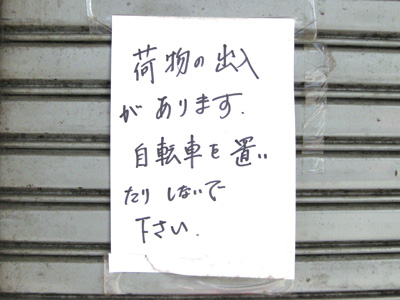 荷物の出入
があります.
自転車を置い
たりしないで
下さい.